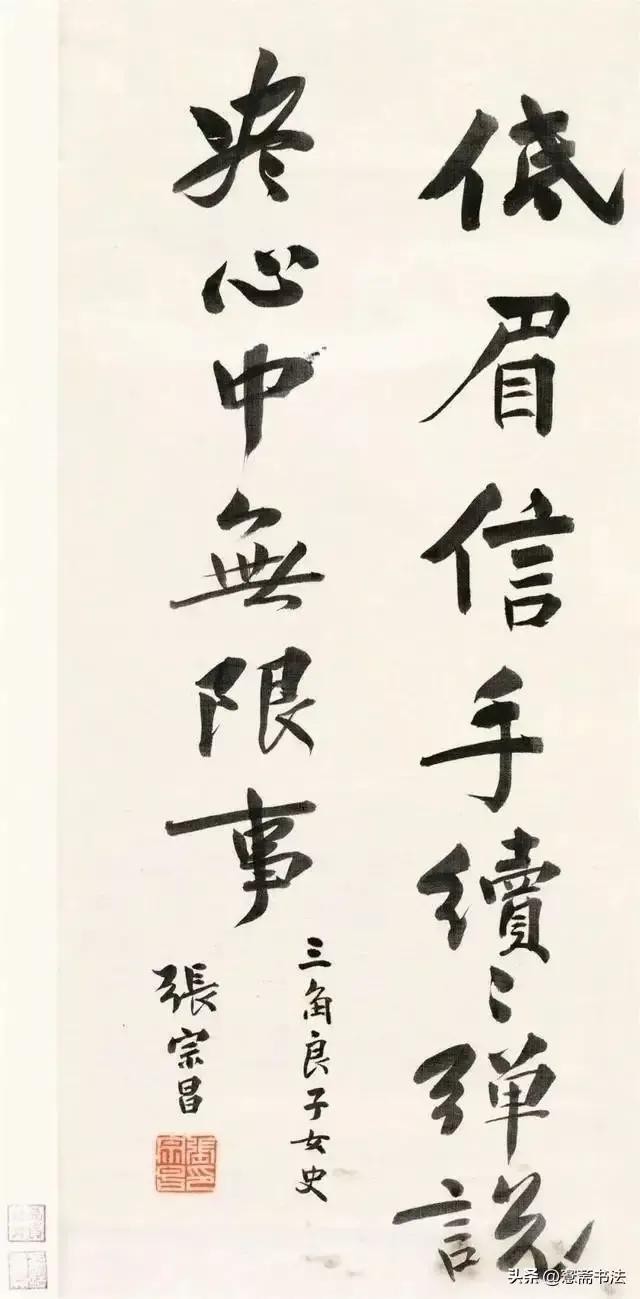 低眉信手續〻彈說
盡心中無限事
三角良子女史
張宗昌
張宗昌印
头条@憲斋书法